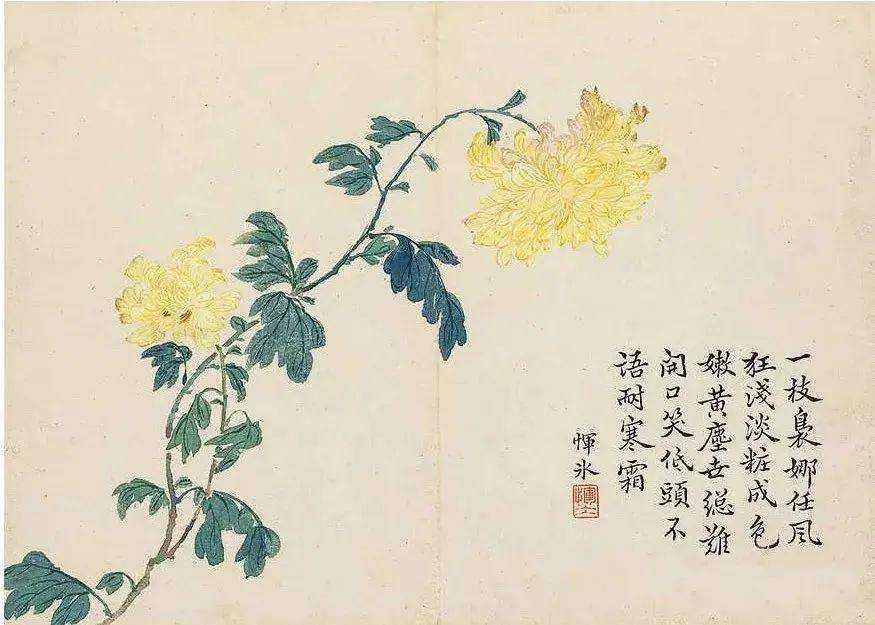 一枝裊娜任風
狂淺淡粧成色
嫩黃塵世總難
開口笑低頭不
語耐寒霜
惲氷